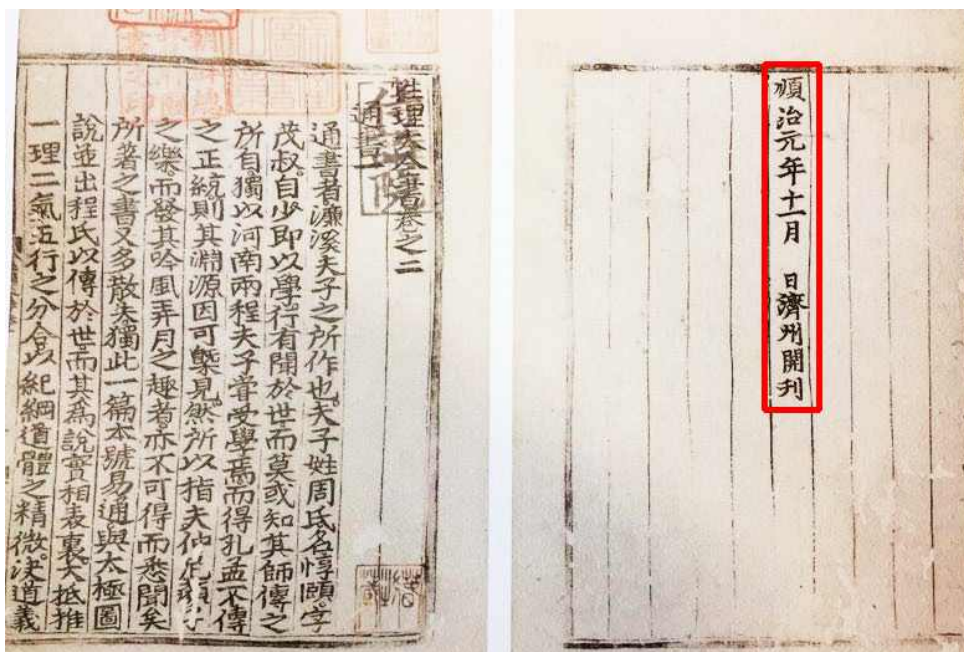 性理大全書卷之二
通書一
通書者濂溪夫子之所作也夫子姓周氏名惇頤字
茂叔自少即以學行有聞於世而莫或知其師傳之
所自獨以河南兩程夫子嘗受學焉而得孔孟不傳
之正統則其淵源因可槩見然所以指夫仲尼顔子
之樂而發其吟風弄月之趣者亦不可得而悉聞矣
所著之書又多散失獨此一篇本號易通與太極圖
說並出程氏以傳於世而其為說實相表裏大抵推
一理二氣五行之分合以紀綱道體之精微決道義
順治元年十一月　日濟州開刊